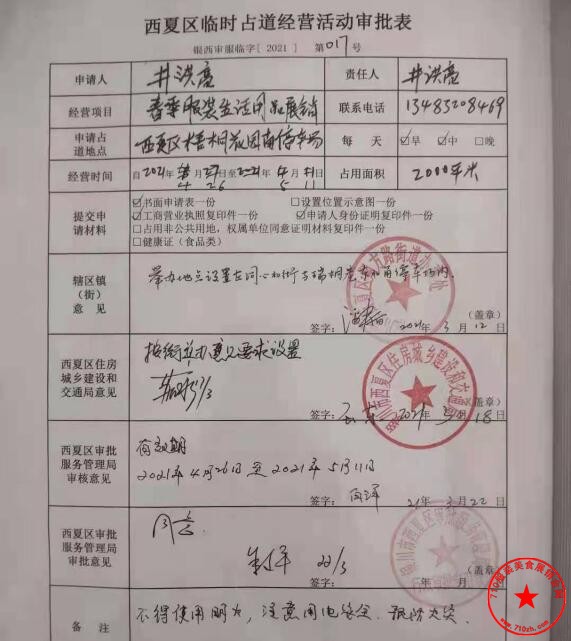 西夏区临时占道经营活动审批表
银西审服临字[ 2021 ] 第017号
申请人 井洪亮 责任人 井洪亮
经营项目 春季服装生活用品展销 联系电话 13483208469
申请占道地点 西夏区梧桐花园南停车场 每 天 ☑早 ☑中 □晚
经营时间 自2021年 月 日至2021年 月 日 占用面积 2000平米
4 26 5 11
提交申请材料
☑书面申请表一份 □设置位置示意图一份
☑工商营业执照复印件一份 ☑申请人身份证明复印件一份
□占用非公共用地，权属单位同意证明材料复印件一份
□健康证（食品类）
辖区镇（街）意见
举办地点设置在同心街与 停车场内.
(盖章)
签字: 2021年 3月 12日
西夏区住房城乡建设和交通局意见
按街道办意见要求设置
(盖章)
签字: 2021年 3月 18日
西夏区审批服务管理局审核意见
有效期
2021年4月26日至2021年5月11日
签字: 21年 3月 22日
西夏区审批服务管理局审批意见
同意
22/3
(盖章)
签字: 年 月 日
备 注
不得使用明火，注意用电安全，预防火灾